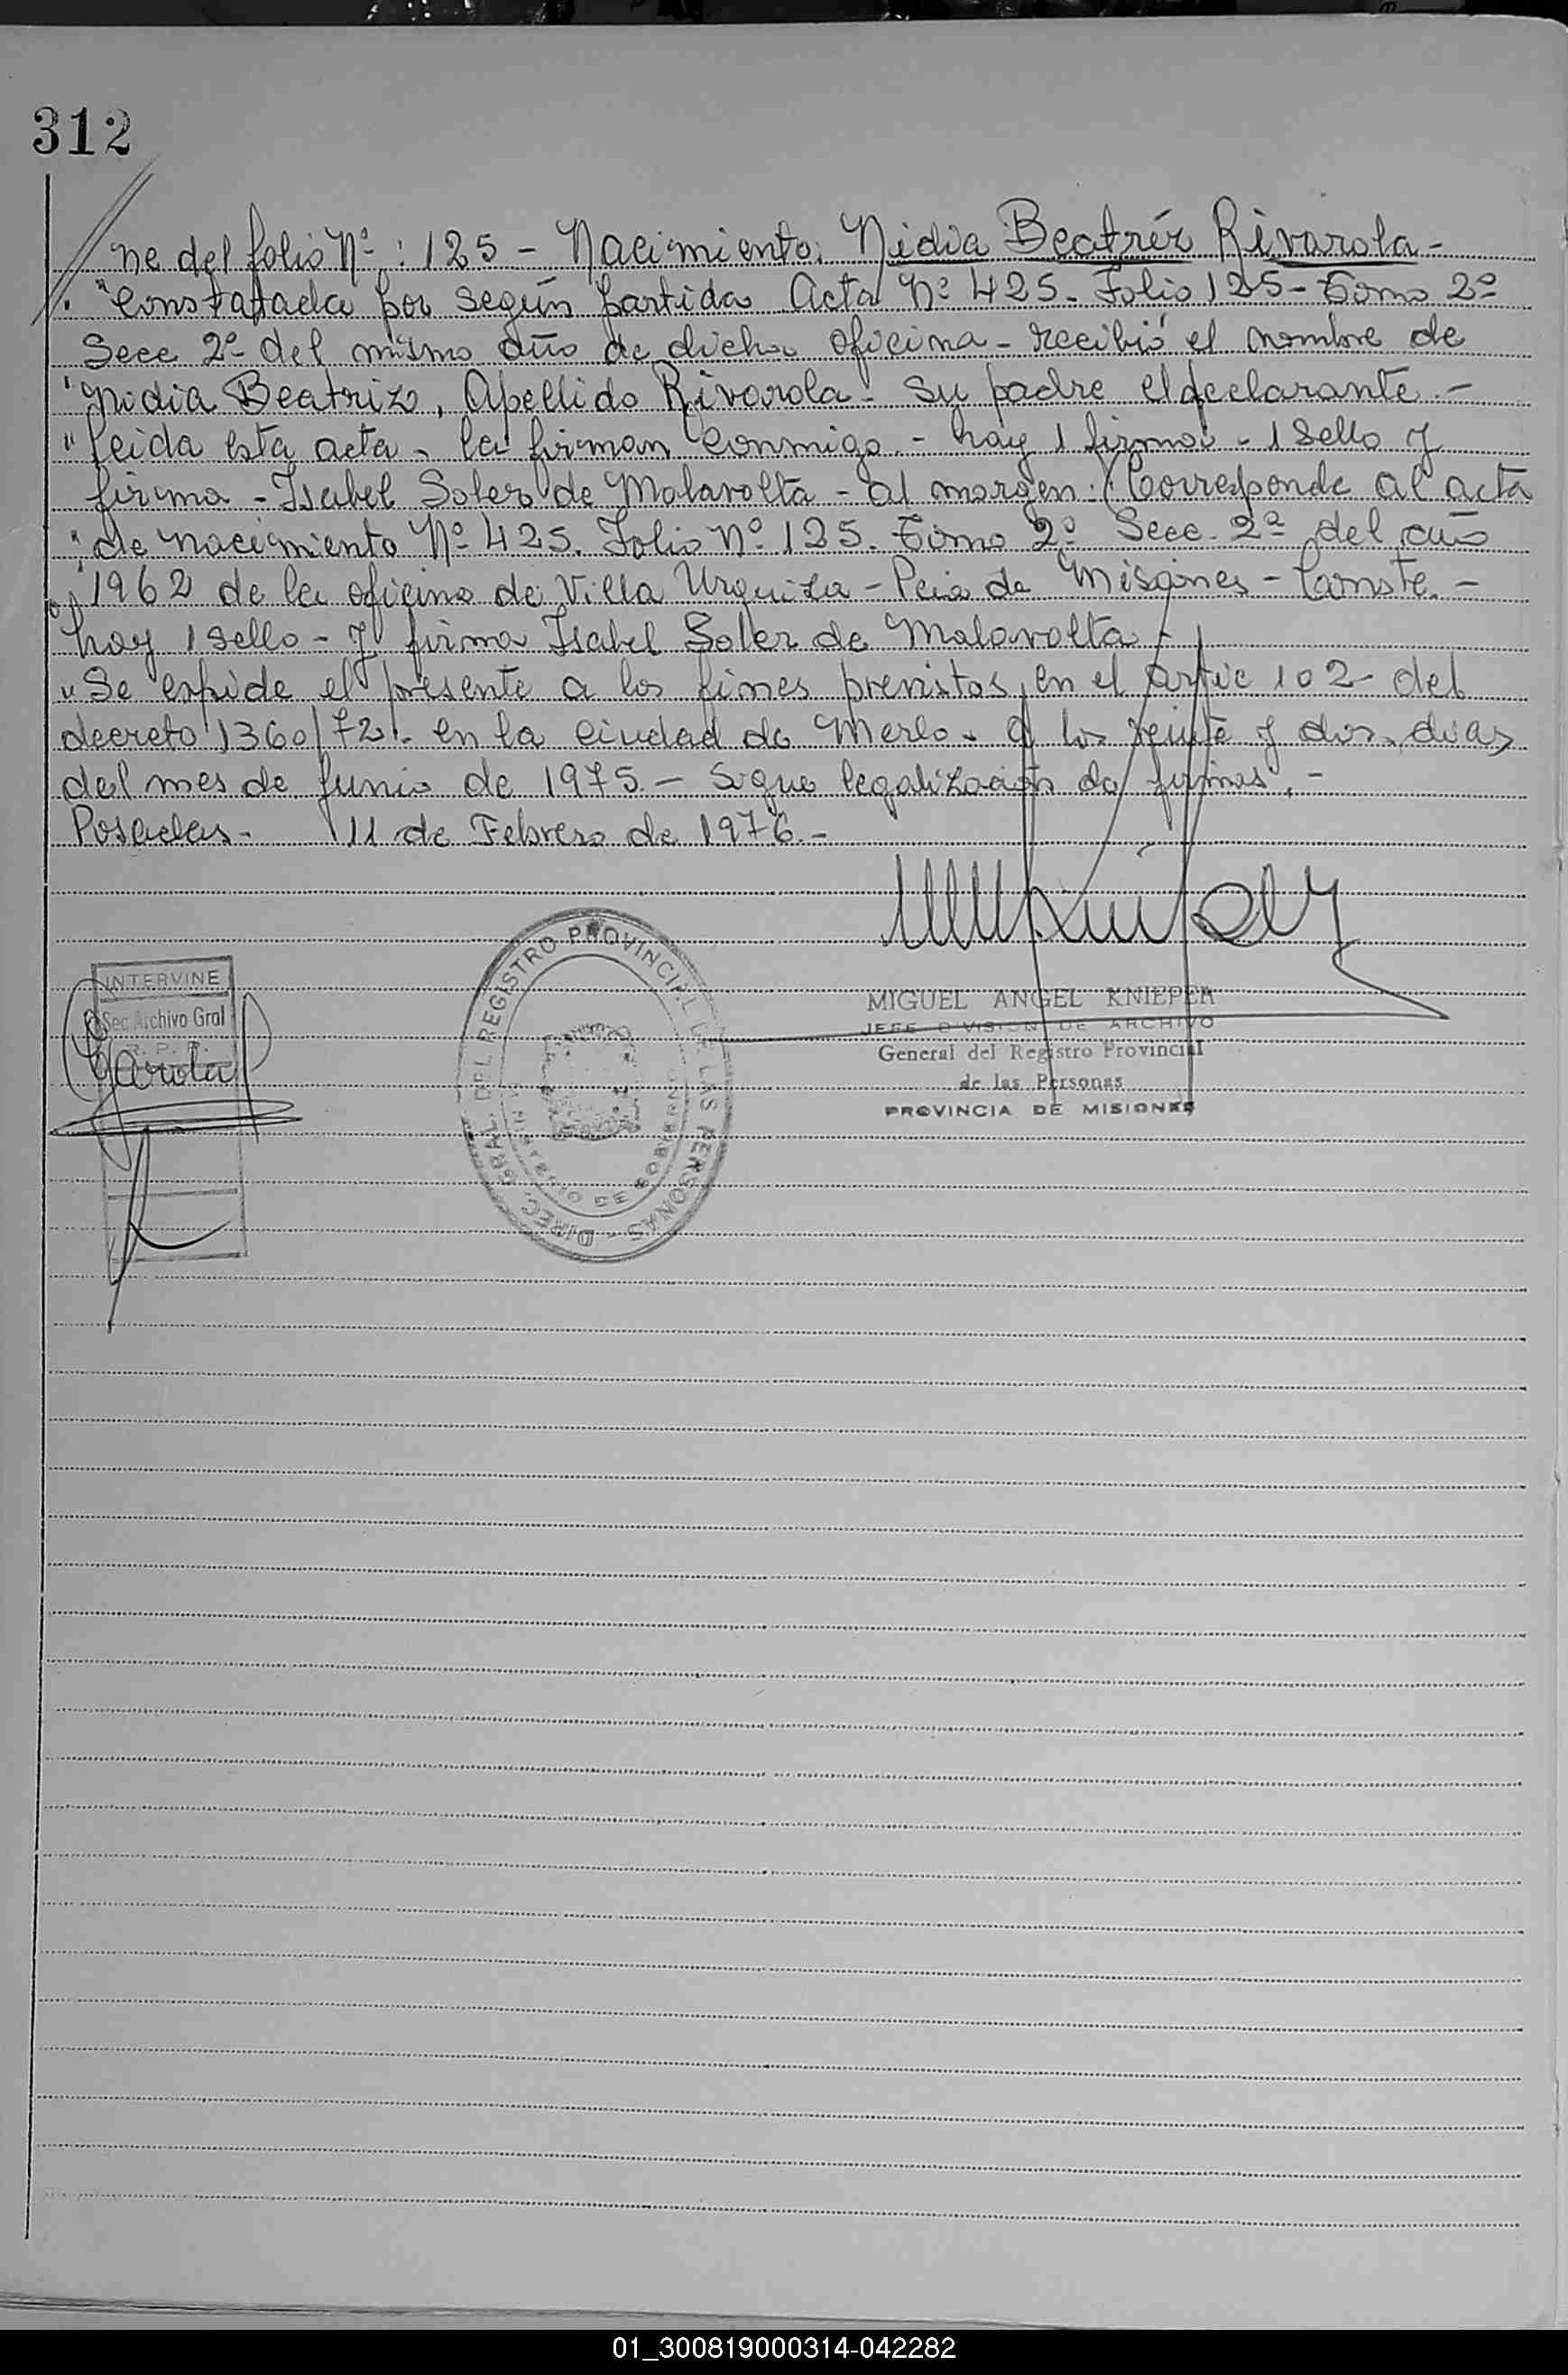 312
// ne del folio Nº : 125 - Nacimiento: Nidia Beatriz Rivarola -
"Constatada por según partida Acta Nº 425 - Folio 125 - Tomo 2º
Secc 2ª del mismo año de dicha oficina - recibió el nombre de
"Nidia Beatriz, Apellido Rivarola - su padre el declarante. -
"leida esta acta - la firman conmigo. - hay 1 firma - 1 Sello y
firma - Isabel Soler de Malavolta - al margen: Corresponde al acta
"de nacimiento Nº 425. Folio Nº 125. Tomo 2º Secc. 2ª del año
"1962 de la oficina de Villa Urquiza - Pcia de Misiones - Conste. -
hay 1 sello - y firma Isabel Soler de Malavolta -
"Se expide el presente a los fines previstos en el artic 102 - del
decreto 1360/72 - en la ciudad de Merlo - a los veinte y dos dias
del mes de Junio de 1975 - Sigue legalización de firmas. -
Posadas - 11 de Febrero de 1976. -
INTERVINE
Sec Archivo Gral
R. P. P.
DIREC. GRAL. DEL REGISTRO PROVINCIAL DE LAS PERSONAS
MINISTERIO DE GOBIERNO
MIGUEL ANGEL KNIEPER
JEFE DIVISION DE ARCHIVO
General del Registro Provincial
de las Personas
PROVINCIA DE MISIONES
01_300819000314-042282